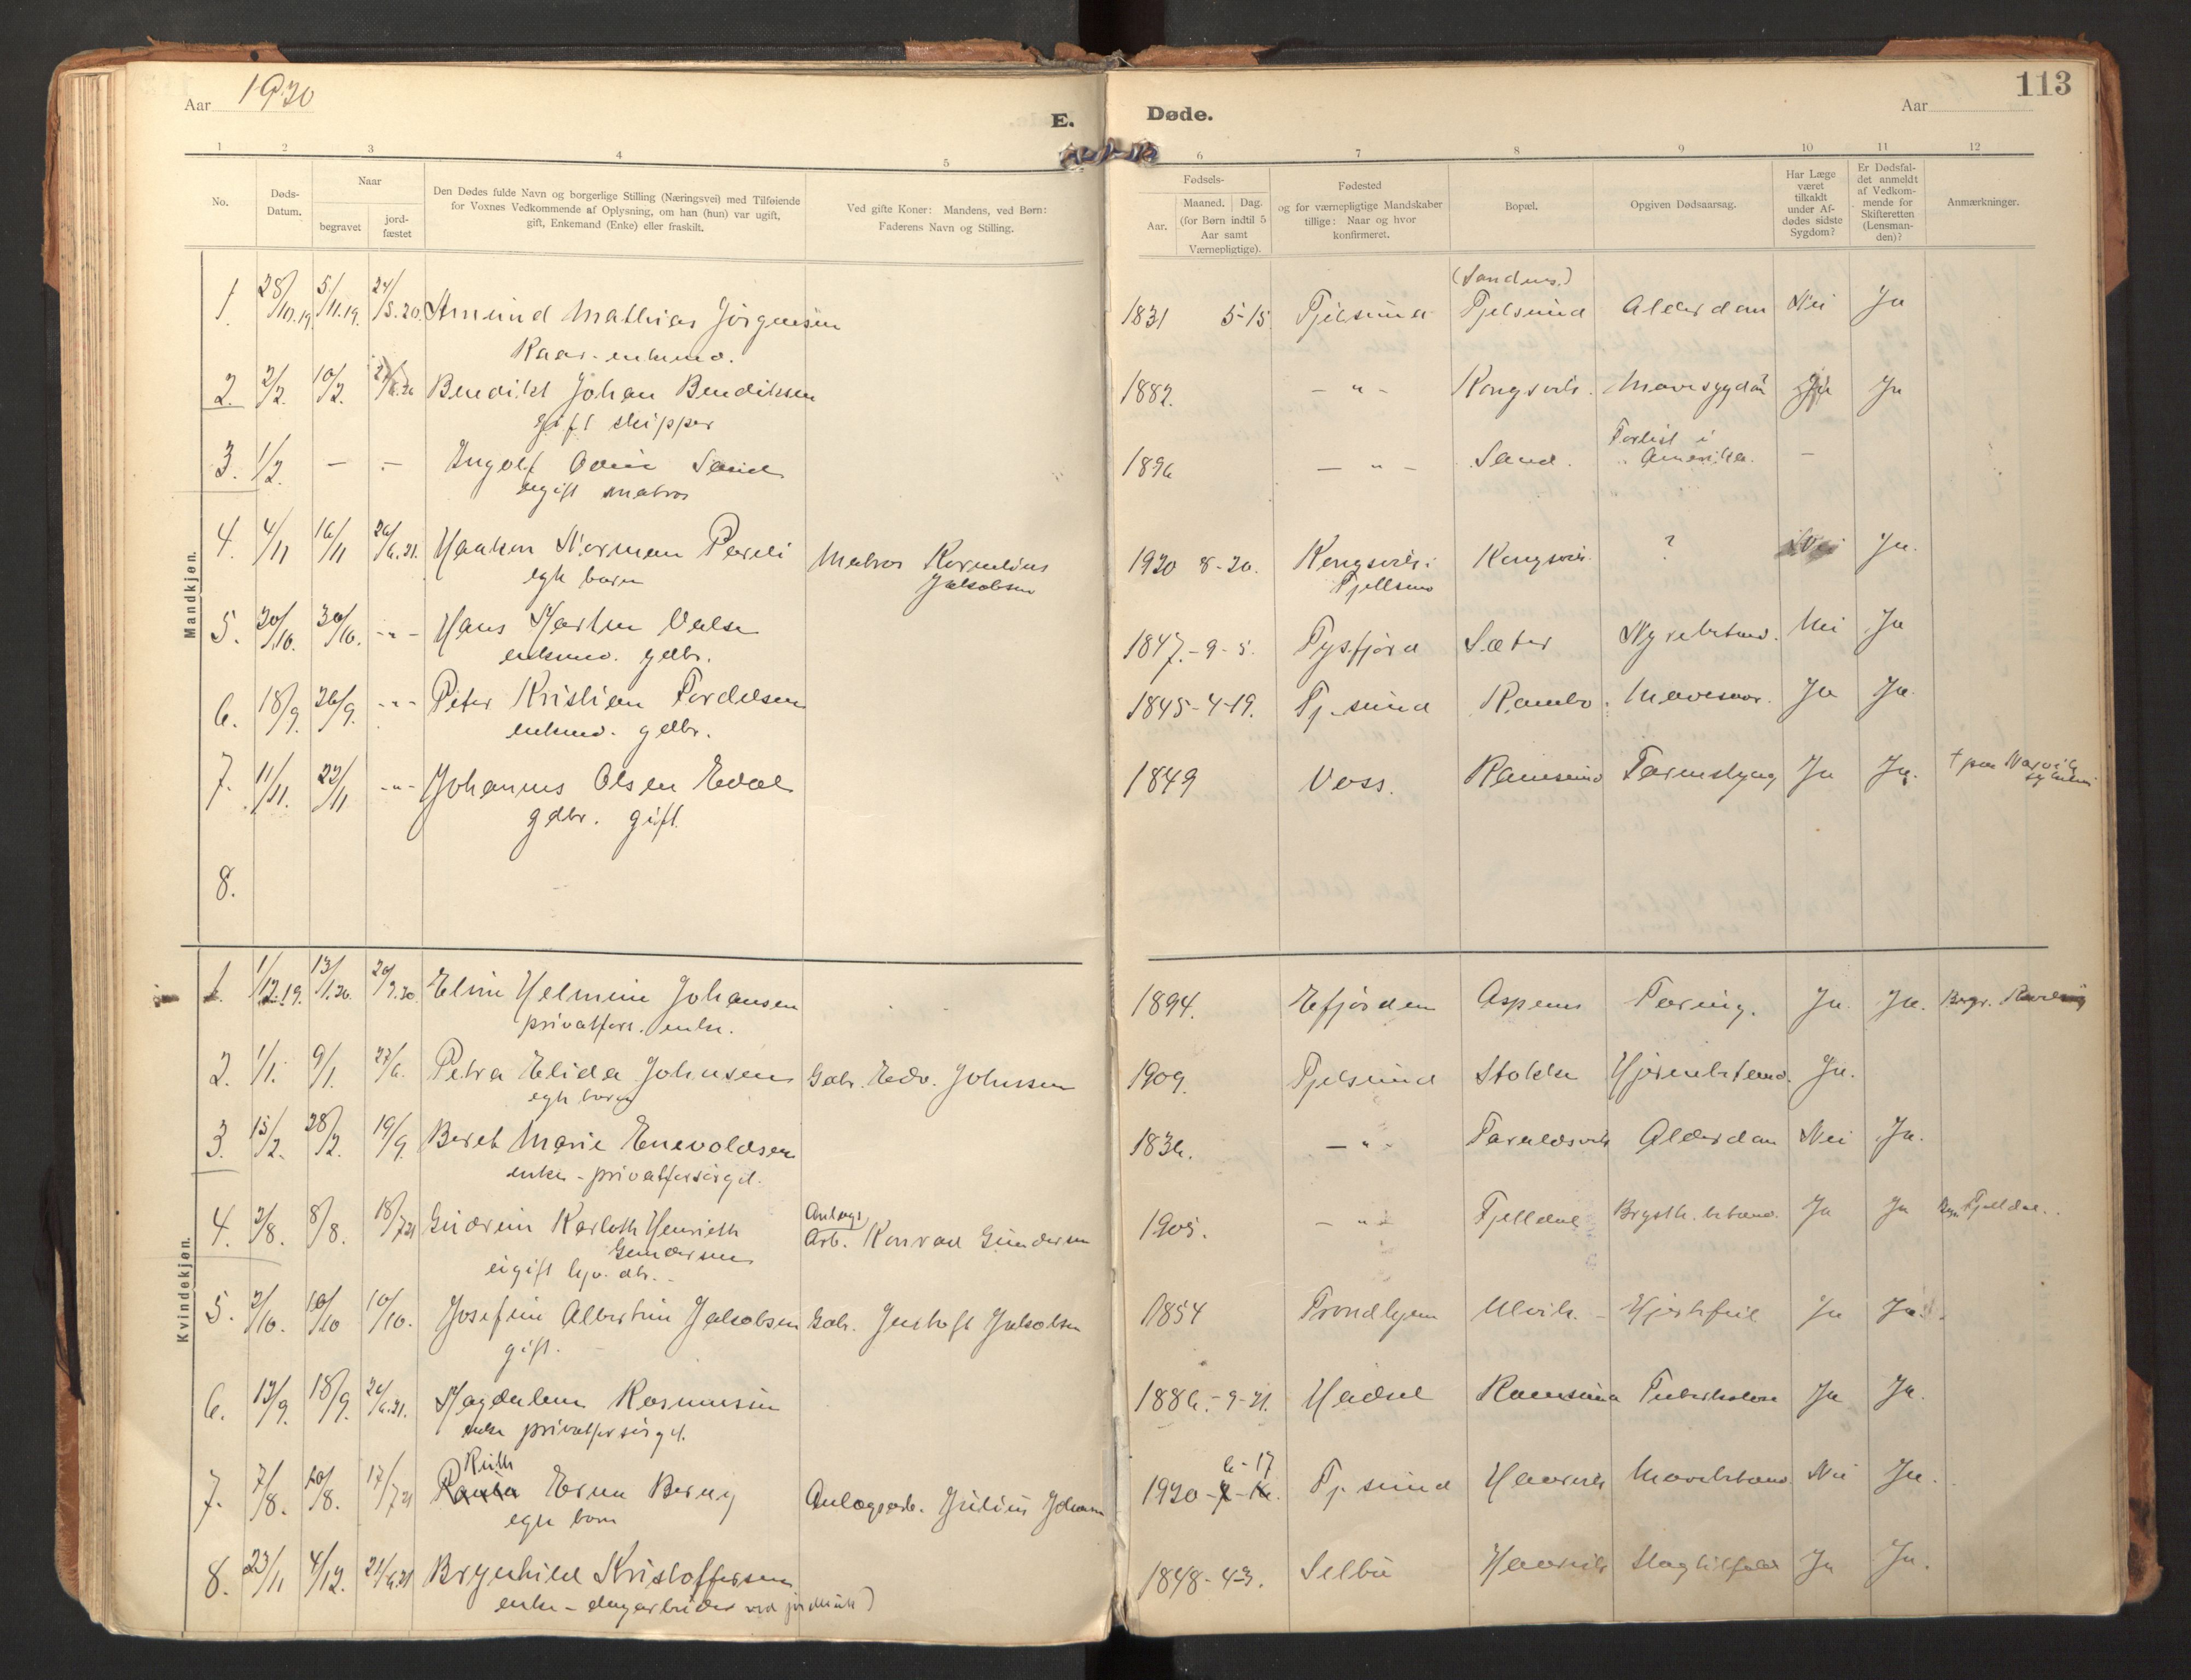 Aar 1920
E.
1 2 3 4 5
No.
Døds-
Datum.
Naar
begravet
jord-
fæstet
Den Dødes fulde Navn og borgerlige Stilling (Næringsvei) med Tilføiende
for Voxnes Vedkommende af Oplysning, om han (hun) var ugift,
gift, Enkemand (Enke) eller fraskilt.
Ved gifte Koner: Mandens, ved Børn:
Faderens Navn og Stilling.
Mandkjøn.
1. 28/10.19. 5/11.19. 24/5.20. Amund Mathias Jørgensen
Kaar-enkem.
2. 2/2. 10/2. Bendikt Johan Bendiksen
gift skipper
3. 1/2. — — Ingolf Odin Sand
ugift matros
4. 4/11 16/11 26/6.21. Haakon Norman Pareli Matros Kornelius
egte barn Jakobsen
5. 30/10. 30/10. -"- Hans Martin
enkem. gdbr.
6. 18/9. 26/9. -"- Peter Kristian Tordelsen
enkem. gdbr.
7. 11/11. 22/11 -"- Johannes Olsen
gdbr. gift.
8.
Kvindekjøn.
1. 1/12.19. 13/1.20. 20/9.20. Eline Helmine Johansen
privatfors. enke.
2. 1/1. 9/1. 27/6. Petra Elida Johnsen Gbr. Edv. Johnsen
egte barn
3. 15/2. 28/2. 19/9. Beret Marie Enevoldsen
enke - privatforsørget.
4. 2/8. 8/8. 18/7.21 Gudrun Karloth Henriette Anlegs
Gundersen Arb. Konrad Gundersen
ugift
5. 2/10. 10/10 10/10. Josefine Albertine Jakobsen Gbr. Gustaf Jakobsen
gift.
6. 13/9. 18/9. 26/6.21. Magdalena Rasmussen
enke privatforsørget.
Ruth
7. 7/8. 10/8. 17/7.21 Erna Berny Anlegsarb. Julius
egte barn
8. 23/11 4/12. 21/6.21 Brynhild Kristoffersen
enke - dagarbeider
113
Døde.
Aar
6 7 8 9 10 11 12
Fødsels-
Aar.
Maaned. Dag.
(for Børn indtil 5
Aar samt
Værnepligtige).
Fødested
og for værnepligtige Mandskaber
tillige: Naar og hvor
konfirmeret.
Bopæl.
Opgiven Dødsaarsag.
Har Læge
været
tilkaldt
under Af-
dødes sidste
Sygdom?
Er Dødsfal-
det anmeldt
af Vedkom-
mende for
Skifteretten
(Lensman-
den)?
Anmærkninger.
1831 5-15 Tjelsund Tjelsund Alderdom Nei Ja
1882. — " — Kongsvik. Mavesygdom Ja Ja
1896 — " — Sand. Forlist i
Amerika. —
1920 8-20. Kongsvik i Kongsvik. ? Nei Ja.
Tjellsund
1847.-9-5. Tysfjord Sæter Nyrebetænd. Nei Ja
1845-4-19. Tj.sund Rambo. Mavesaar. Ja Ja
1849 Voss. Ramsund Tarmslyng Ja Ja. † paa Narvik
1894. Efjorden Aspenes Tæring. Ja. Ja. Begr.
1909. Tjelsund Stokke Hjernebetænd. Ja.
1836. — " — Taraldsvik Alderdom Nei Ja.
1905. — " — Fjelldal Brysth. betænd. Ja Ja Fjelldal.
1854 Trondhjem Ulvik. Hjertefeil Ja Ja.
1886.-9-21. Hadsel Ramsund Tuberkulose Ja Ja.
6-17
1920 Tj.sund Haavik Mavebetænd Nei Ja.
1848-4-3. Selbu Haavik Slagtilfæld Ja Ja.